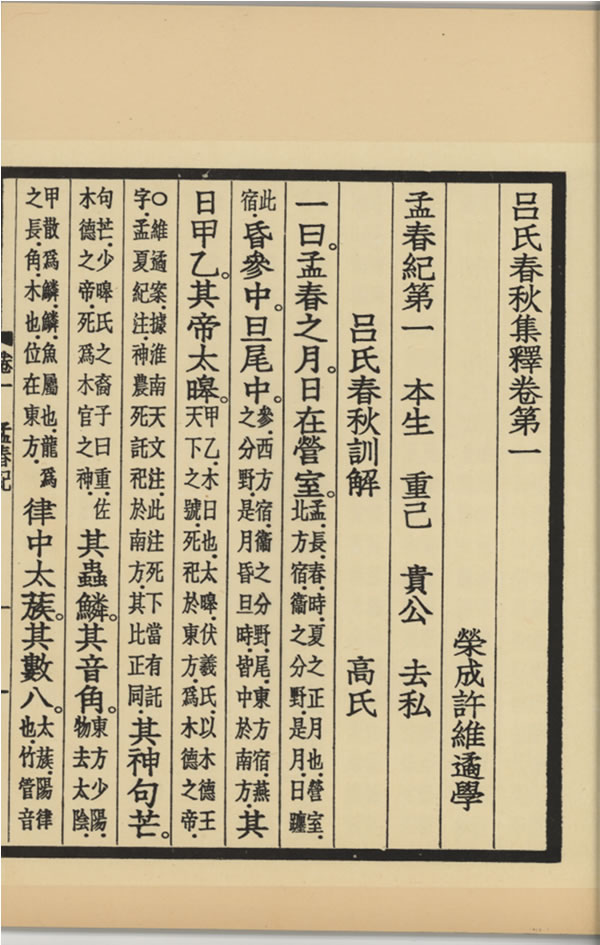 呂氏春秋集釋卷第一
榮成許維遹學
孟春紀第一 本生 重己 貴公 去私
呂氏春秋訓解 高氏
一曰。孟春之月。日在營室。孟、長、春時、夏之正月也、營室、北方宿、衛之分野、是月、日躔
此宿、昏參中。旦尾中。參、西方宿、衛之分野、尾、東方宿、燕之分野、是月昏旦時、皆中於南方、其
日甲乙。其帝太皞。甲乙、木日也、太皞、伏羲氏以木德王天下之號、死祀於東方、爲木德之帝、
○維遹案、據淮南天文注、此注死下當有託字、孟夏紀注、神農死託祀於南方、其比正同、其神句芒。
句芒、少皞氏之裔子曰重、佐木德之帝、死爲木官之神、其蟲鱗。其音角。東方少陽、物去太陰、
甲散爲鱗、鱗、魚屬也、龍爲之長、角、木也、位在東方、律中太蔟。其數八。太蔟、陽律也、竹管音
卷一 孟春紀 一